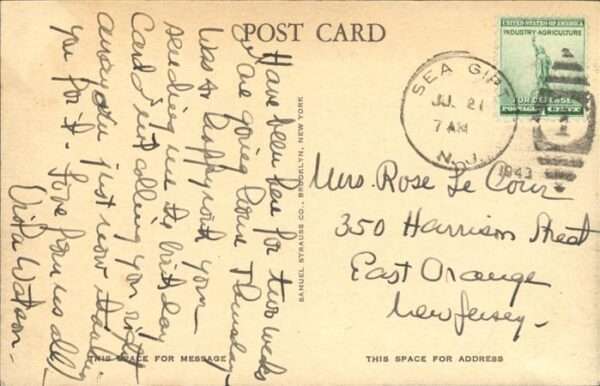 POST CARD
UNITED STATES OF AMERICA
INDUSTRY AGRICULTURE
FOR DEFENSE
SEA GIRT
JUL 21
7 AM
N.J.
1943
Have been here for two weeks
& are going home Thursday
Was so happy with your
sending me the birthday
Card & not calling you right
away am just now thanking
you for it. Love from us all
Watson -
SAMUEL STRAUSS CO., BROOKLYN, NEW YORK
Mrs. Rose Le Cour
350 Harrison Street
East Orange
New Jersey -
THIS SPACE FOR MESSAGE
THIS SPACE FOR ADDRESS